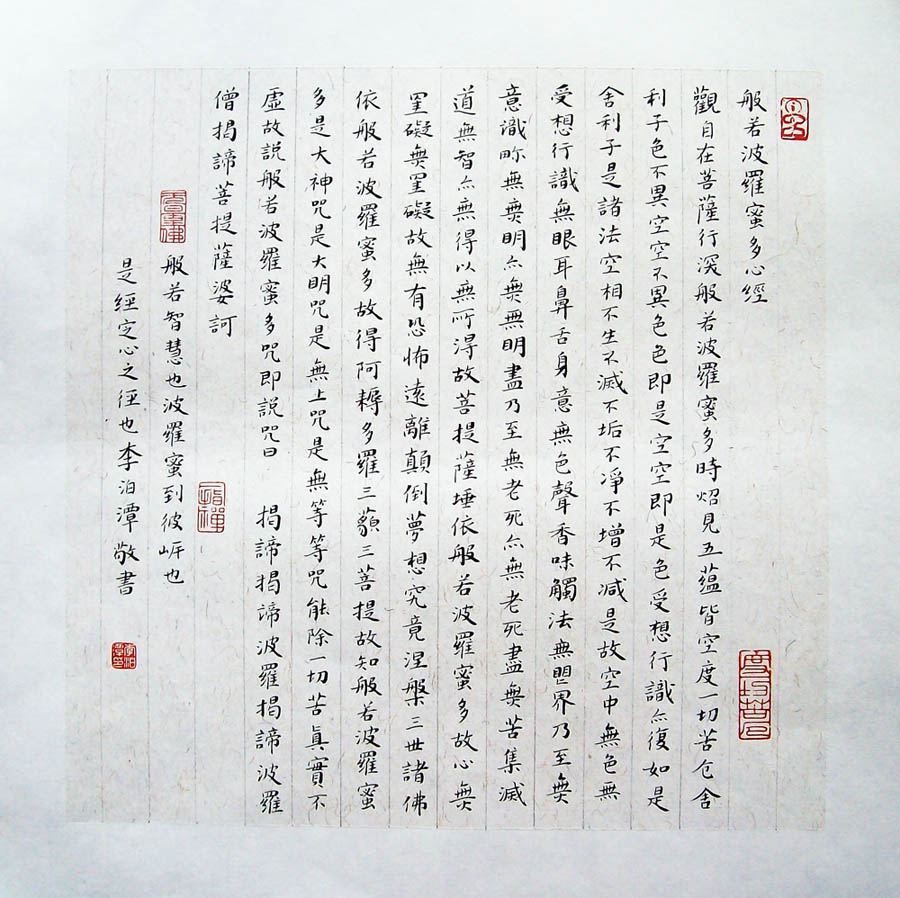 般若波羅蜜多心經
觀自在菩薩行深般若波羅蜜多時炤見五蘊皆空度一切苦厄舍
利子色不異空空不異色色即是空空即是色受想行識亦復如是
舍利子是諸法空相不生不滅不垢不淨不增不減是故空中無色無
受想行識無眼耳鼻舌身意無色聲香味觸法無眼界乃至無
意識界無無明亦無無明盡乃至無老死亦無老死盡無苦集滅
道無智亦無得以無所得故菩提薩埵依般若波羅蜜多故心無
罣礙無罣礙故無有恐怖遠離顛倒夢想究竟涅槃三世諸佛
依般若波羅蜜多故得阿耨多羅三藐三菩提故知般若波羅蜜
多是大神咒是大明咒是無上咒是無等等咒能除一切苦真實不
虛故說般若波羅蜜多咒即說咒曰 揭諦揭諦波羅揭諦波羅
僧揭諦菩提薩婆訶
般若智慧也波羅蜜到彼岸也
是經定心之徑也李泊潭敬書